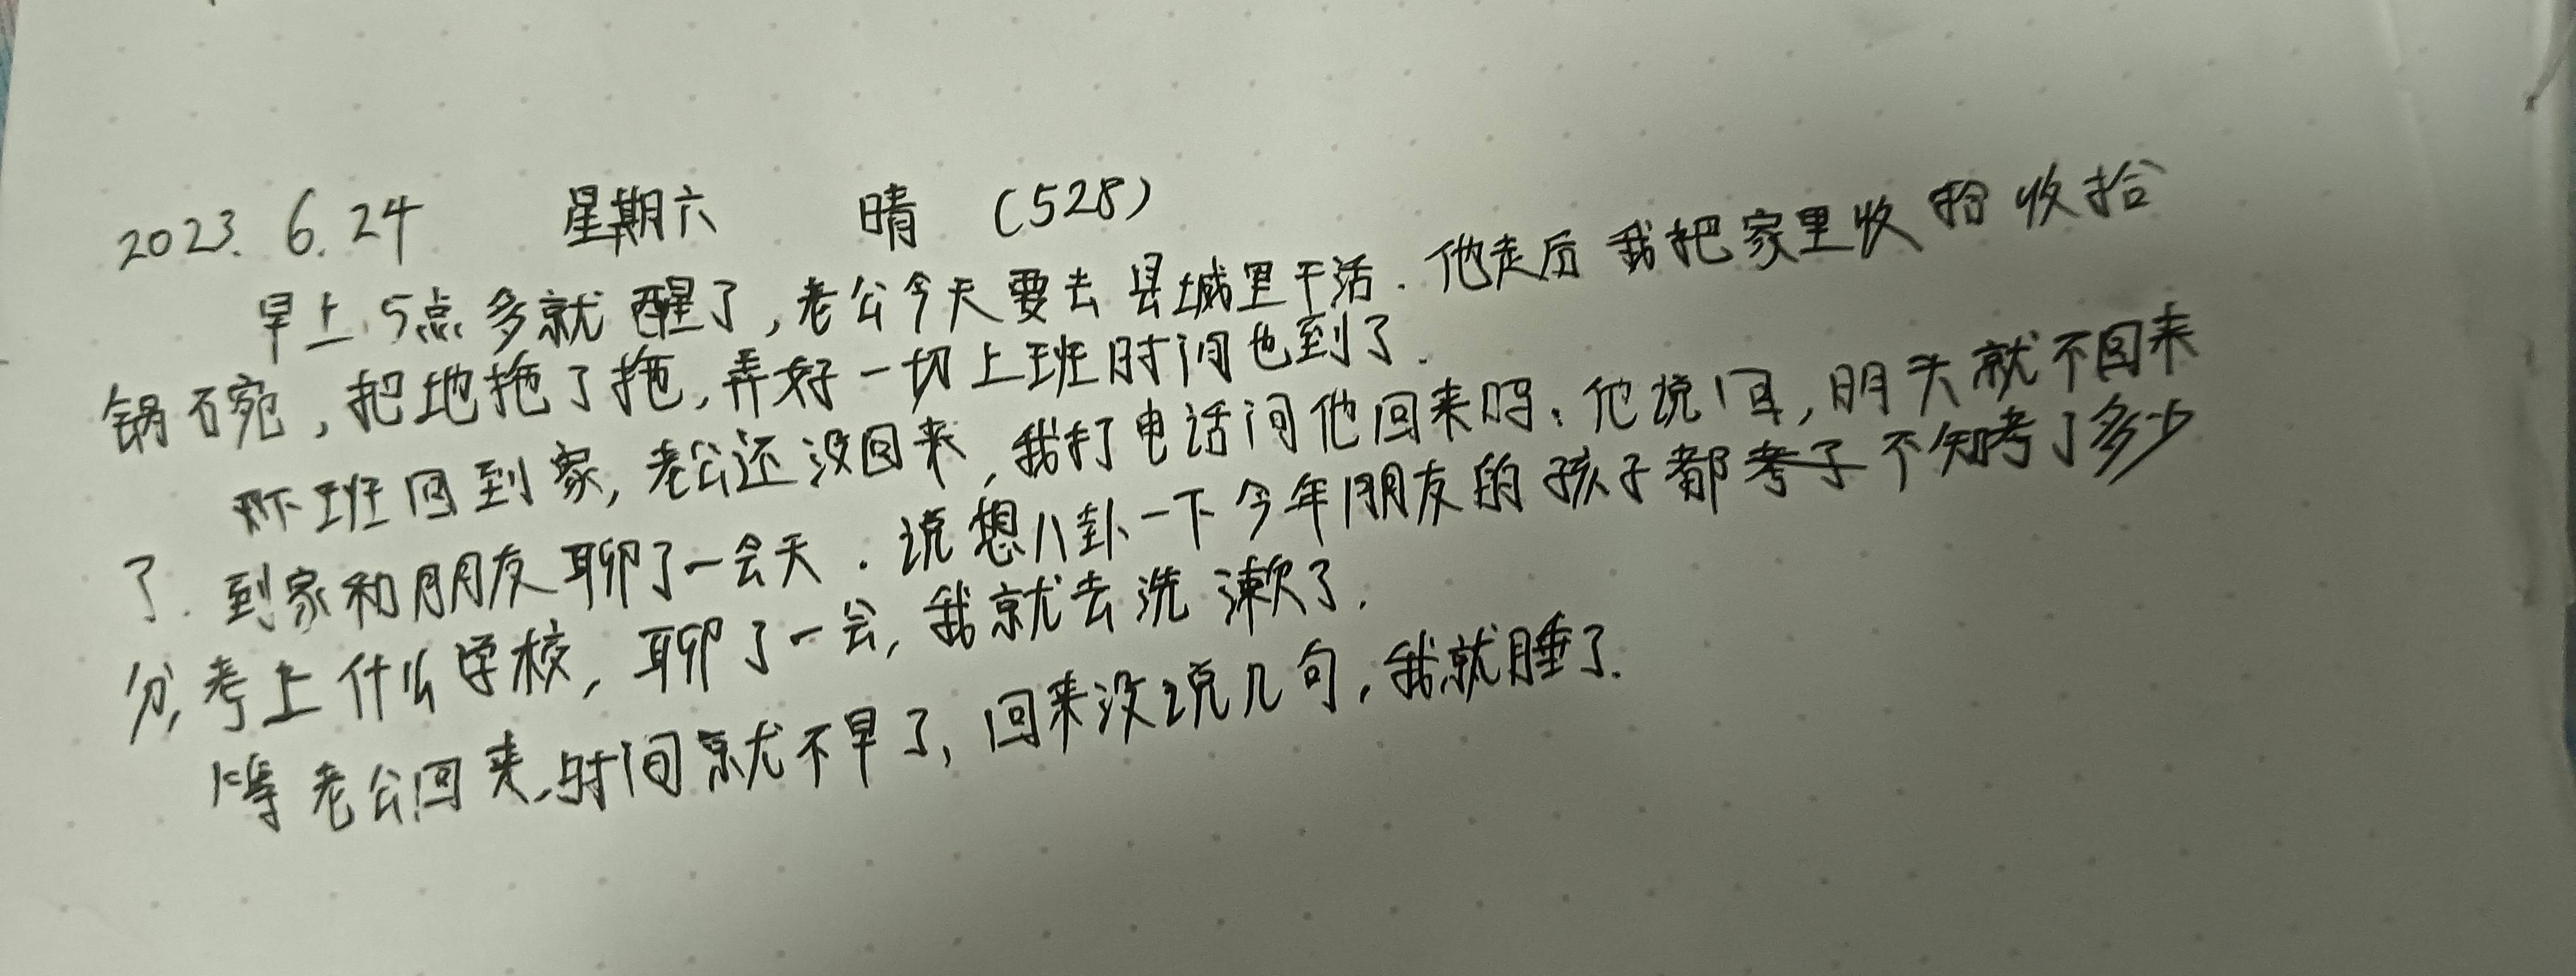 2023. 6. 24 星期六 晴 (528)
早上5点多就醒了,老公今天要去县城里干活.他走后我把家里收拾收拾
锅碗,把地拖了拖,弄好一切上班时间也到了.
下班回到家,老公还没回来,我打电话问他回来吗.他说回,明天就不回来
了.到家和朋友聊了一会天.说想八卦一下今年朋友的孩子都考了不知考了多少
分,考上什么学校,聊了一会,我就去洗漱了.
等老公回来,时间就不早了,回来没说几句,我就睡了.